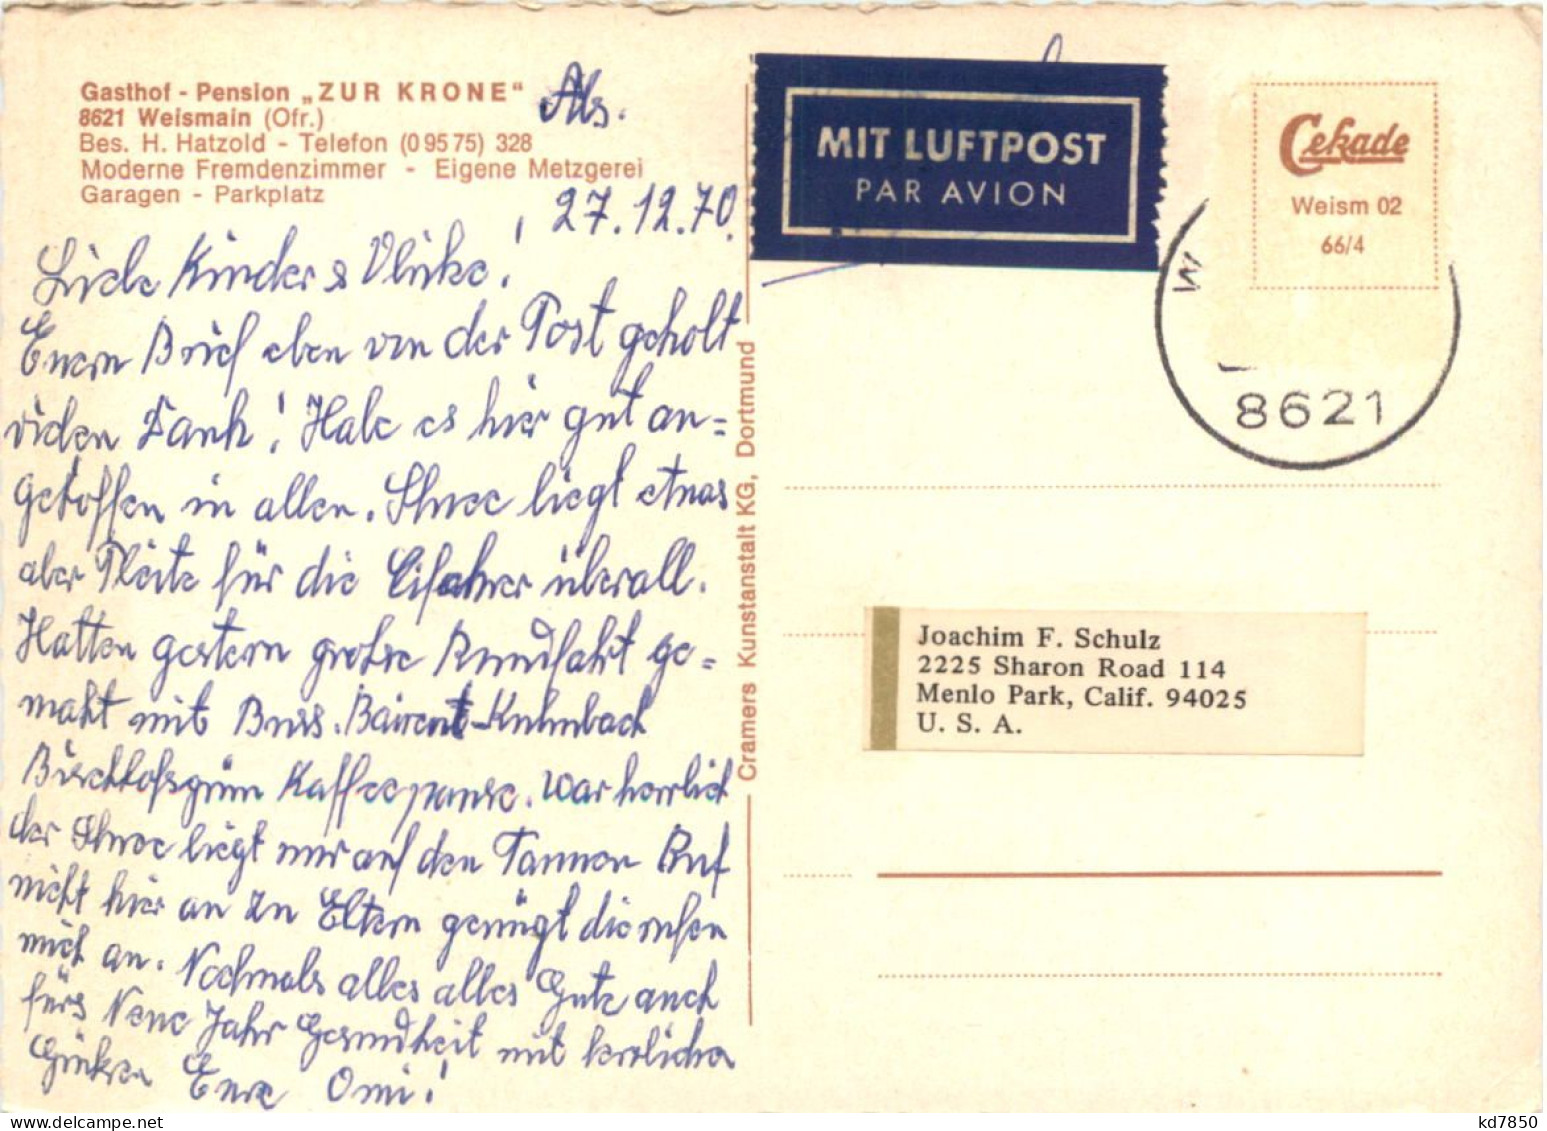 Gasthof - Pension „ZUR KRONE“
8621 Weismain (Ofr.)
Bes. H. Hatzold - Telefon (0 95 75) 328
Moderne Fremdenzimmer - Eigene Metzgerei
Garagen - Parkplatz
Abs.
27.12.70.
Liebe Kinder & Ulrike!
Euern Brief eben von der Post geholt
vielen Dank! Habe es hier gut an=
getroffen in allen. Schnee liegt etwas
aber Pleite für die überall.
Hatten gestern große Rundfahrt ge=
macht mit Buss. Baireut-Kulmbach
Kaffeepause. War herrlich
der Schnee liegt nur auf den Tannen Ruf
nicht hier an zu Eltern genügt die rufen
mich an. Nochmals alles alles Gute auch
fürs Neue Jahr Gesundheit mit herzlichen
Grüßen Eure Omi!
Cramers Kunstanstalt KG, Dortmund
MIT LUFTPOST
PAR AVION
Cekade
Weism 02
66/4
W
8621
Joachim F. Schulz
2225 Sharon Road 114
Menlo Park, Calif. 94025
U. S. A.
kd7850